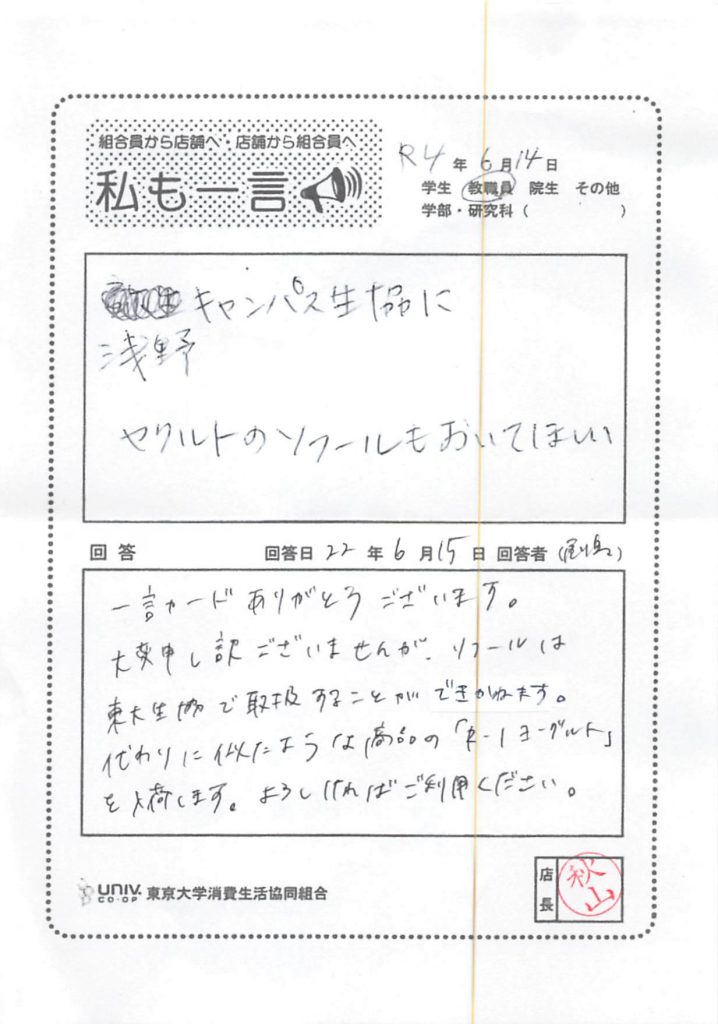 組合員から店舗へ・店舗から組合員へ
私も一言
R4 年 6月14日
学生 教職員 院生 その他
学部・研究科( )
キャンパス生協に
浅野
ヤクルトのソフールもおいてほしい
回答 回答日 22 年 6 月 15 日 回答者 ( )
一言カードありがとうございます。
大変申し訳ございませんが、ソフールは
東大生協で取扱することができかねます。
代わりに似たような商品の「R-1ヨーグルト」
を入荷します。よろしければご利用ください。
UNIV. CO-OP 東京大学消費生活協同組合
店長 秋山